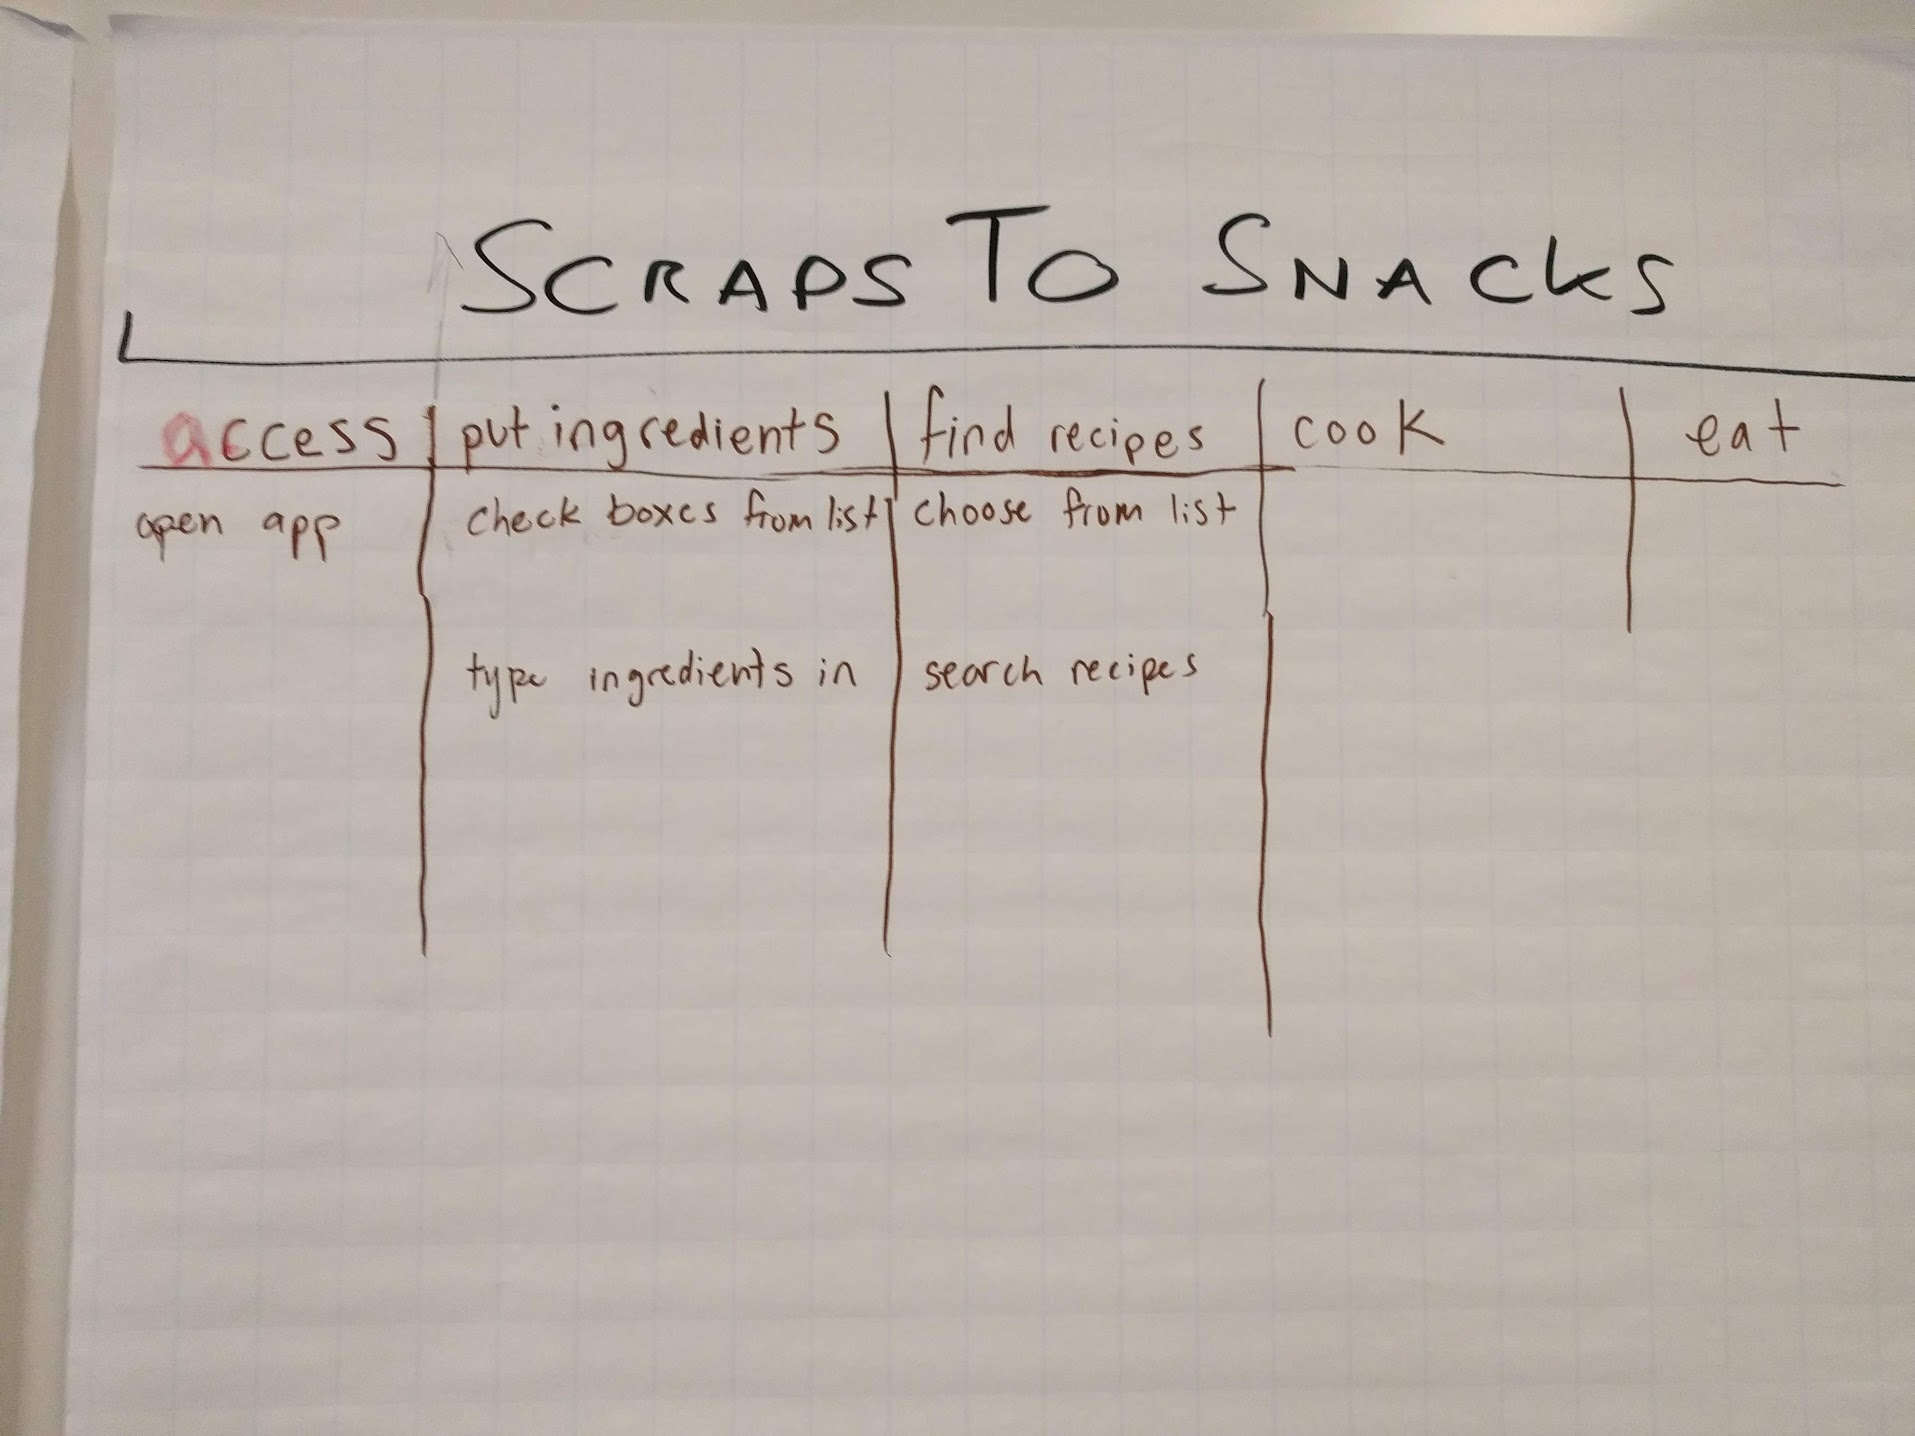 SCRAPS TO SNACKS
access put ingredients find recipes cook eat
open app check boxes from list choose from list
type ingredients in search recipes